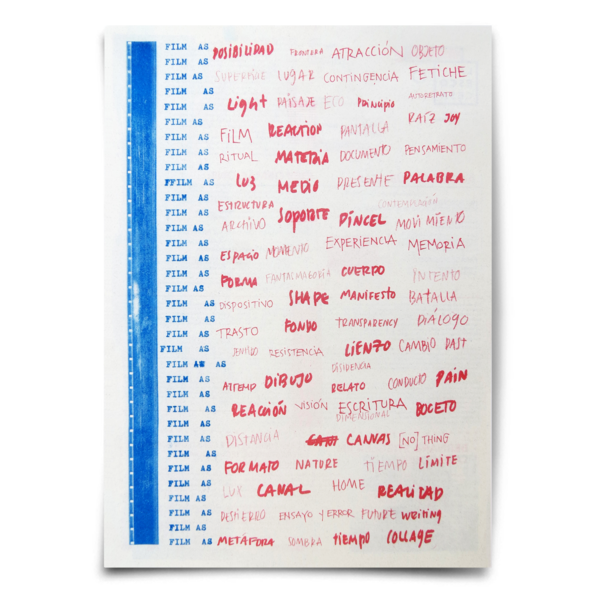 FILM AS POSIBILIDAD FRONTERA ATRACCIÓN OBJETO
FILM AS
FILM AS SUPERFICIE LUGAR CONTINGENCIA FETICHE
FILM AS AUTORETRATO
FILM AS Light PAISAJE ECO Principio
FILM AS RAÍZ JOY
FILM AS FiLM REACTION PANTALLA
FILM AS RITUAL MATERIA DOCUMENTO PENSAMIENTO
FILM AS
FFILM AS LUZ MEDIO PRESENTE PALABRA
FILM AS ESTRUCTURA CONTEMPLACIÓN
FILM AS ARCHIVO SOPORTE PINCEL MOVIMIENTO
FILM AS EXPERIENCIA MEMORIA
FILM AS ESPACIO MOMENTO
FILM AS FORMA FANTASMAGORIA CUERPO INTENTO
FILM AS
FILM AS DISPOSITIVO SHAPE MANIFESTO BATALLA
FILM AS TRASTO FONDO TRANSPARENCY DIÁLOGO
FILM AS RESISTENCIA LIENZO CAMBIO PAST
FILM AS DISIDENCIA
FILM AS ATTEMP DIBUJO RELATO CONDUCIO PAIN
FILM AS
FILM AS REACCIÓN VISIÓN ESCRITURA BOCETO
FILM AS DIMENSIONAL
FILM AS DISTANCIA CANVAS [NO]THING
FILM AS
FILM AS FORMATO NATURE TIEMPO LÍMITE
FILM AS LUX CANAL HOME REALIDAD
FILM AS
FILM AS DESTIERRO ENSAYO Y ERROR FUTURE WRiting
FILM AS METAFORA SOMBRA tiEMPO COLLAGE